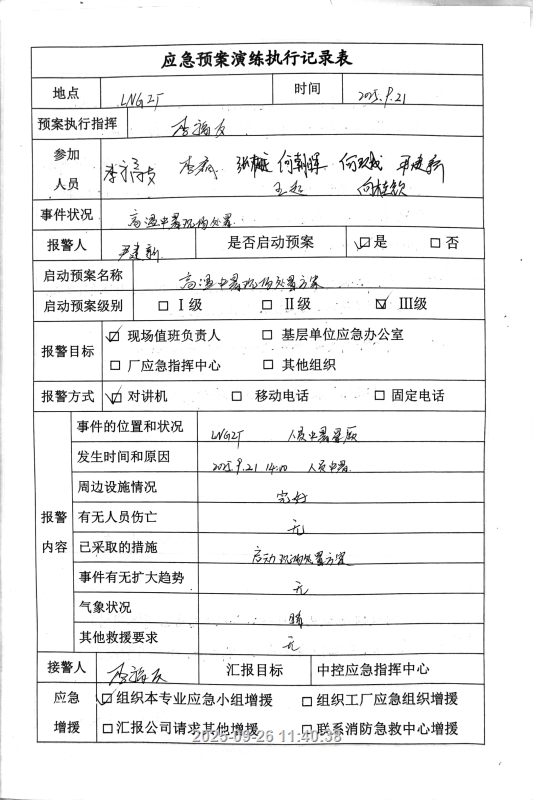 应急预案演练执行记录表
地点 LNG2T 时间 2025.9.21
预案执行指挥
参加 李斌 张 何朝晖
人员 王起
事件状况 高温中暑现场处置
报警人 尹建新 是否启动预案 ☑是 □否
启动预案名称 高温中暑现场处置方案
启动预案级别 □ I级 □ II级 ☑ III级
报警目标 ☑ 现场值班负责人 □ 基层单位应急办公室
□ 厂应急指挥中心 □ 其他组织
报警方式 ☑ 对讲机 □ 移动电话 □ 固定电话
报警内容
事件的位置和状况 LNG2T 人员中暑晕厥
发生时间和原因 2025.9.21 14:00 人员中暑
周边设施情况 完好
有无人员伤亡 无
已采取的措施 启动现场处置方案
事件有无扩大趋势 无
气象状况 晴
其他救援要求 无
接警人 汇报目标 中控应急指挥中心
应急 ☑组织本专业应急小组增援 □组织工厂应急组织增援
增援 □汇报公司请求其他增援 □联系消防急救中心增援
2025-09-26 11:40:38